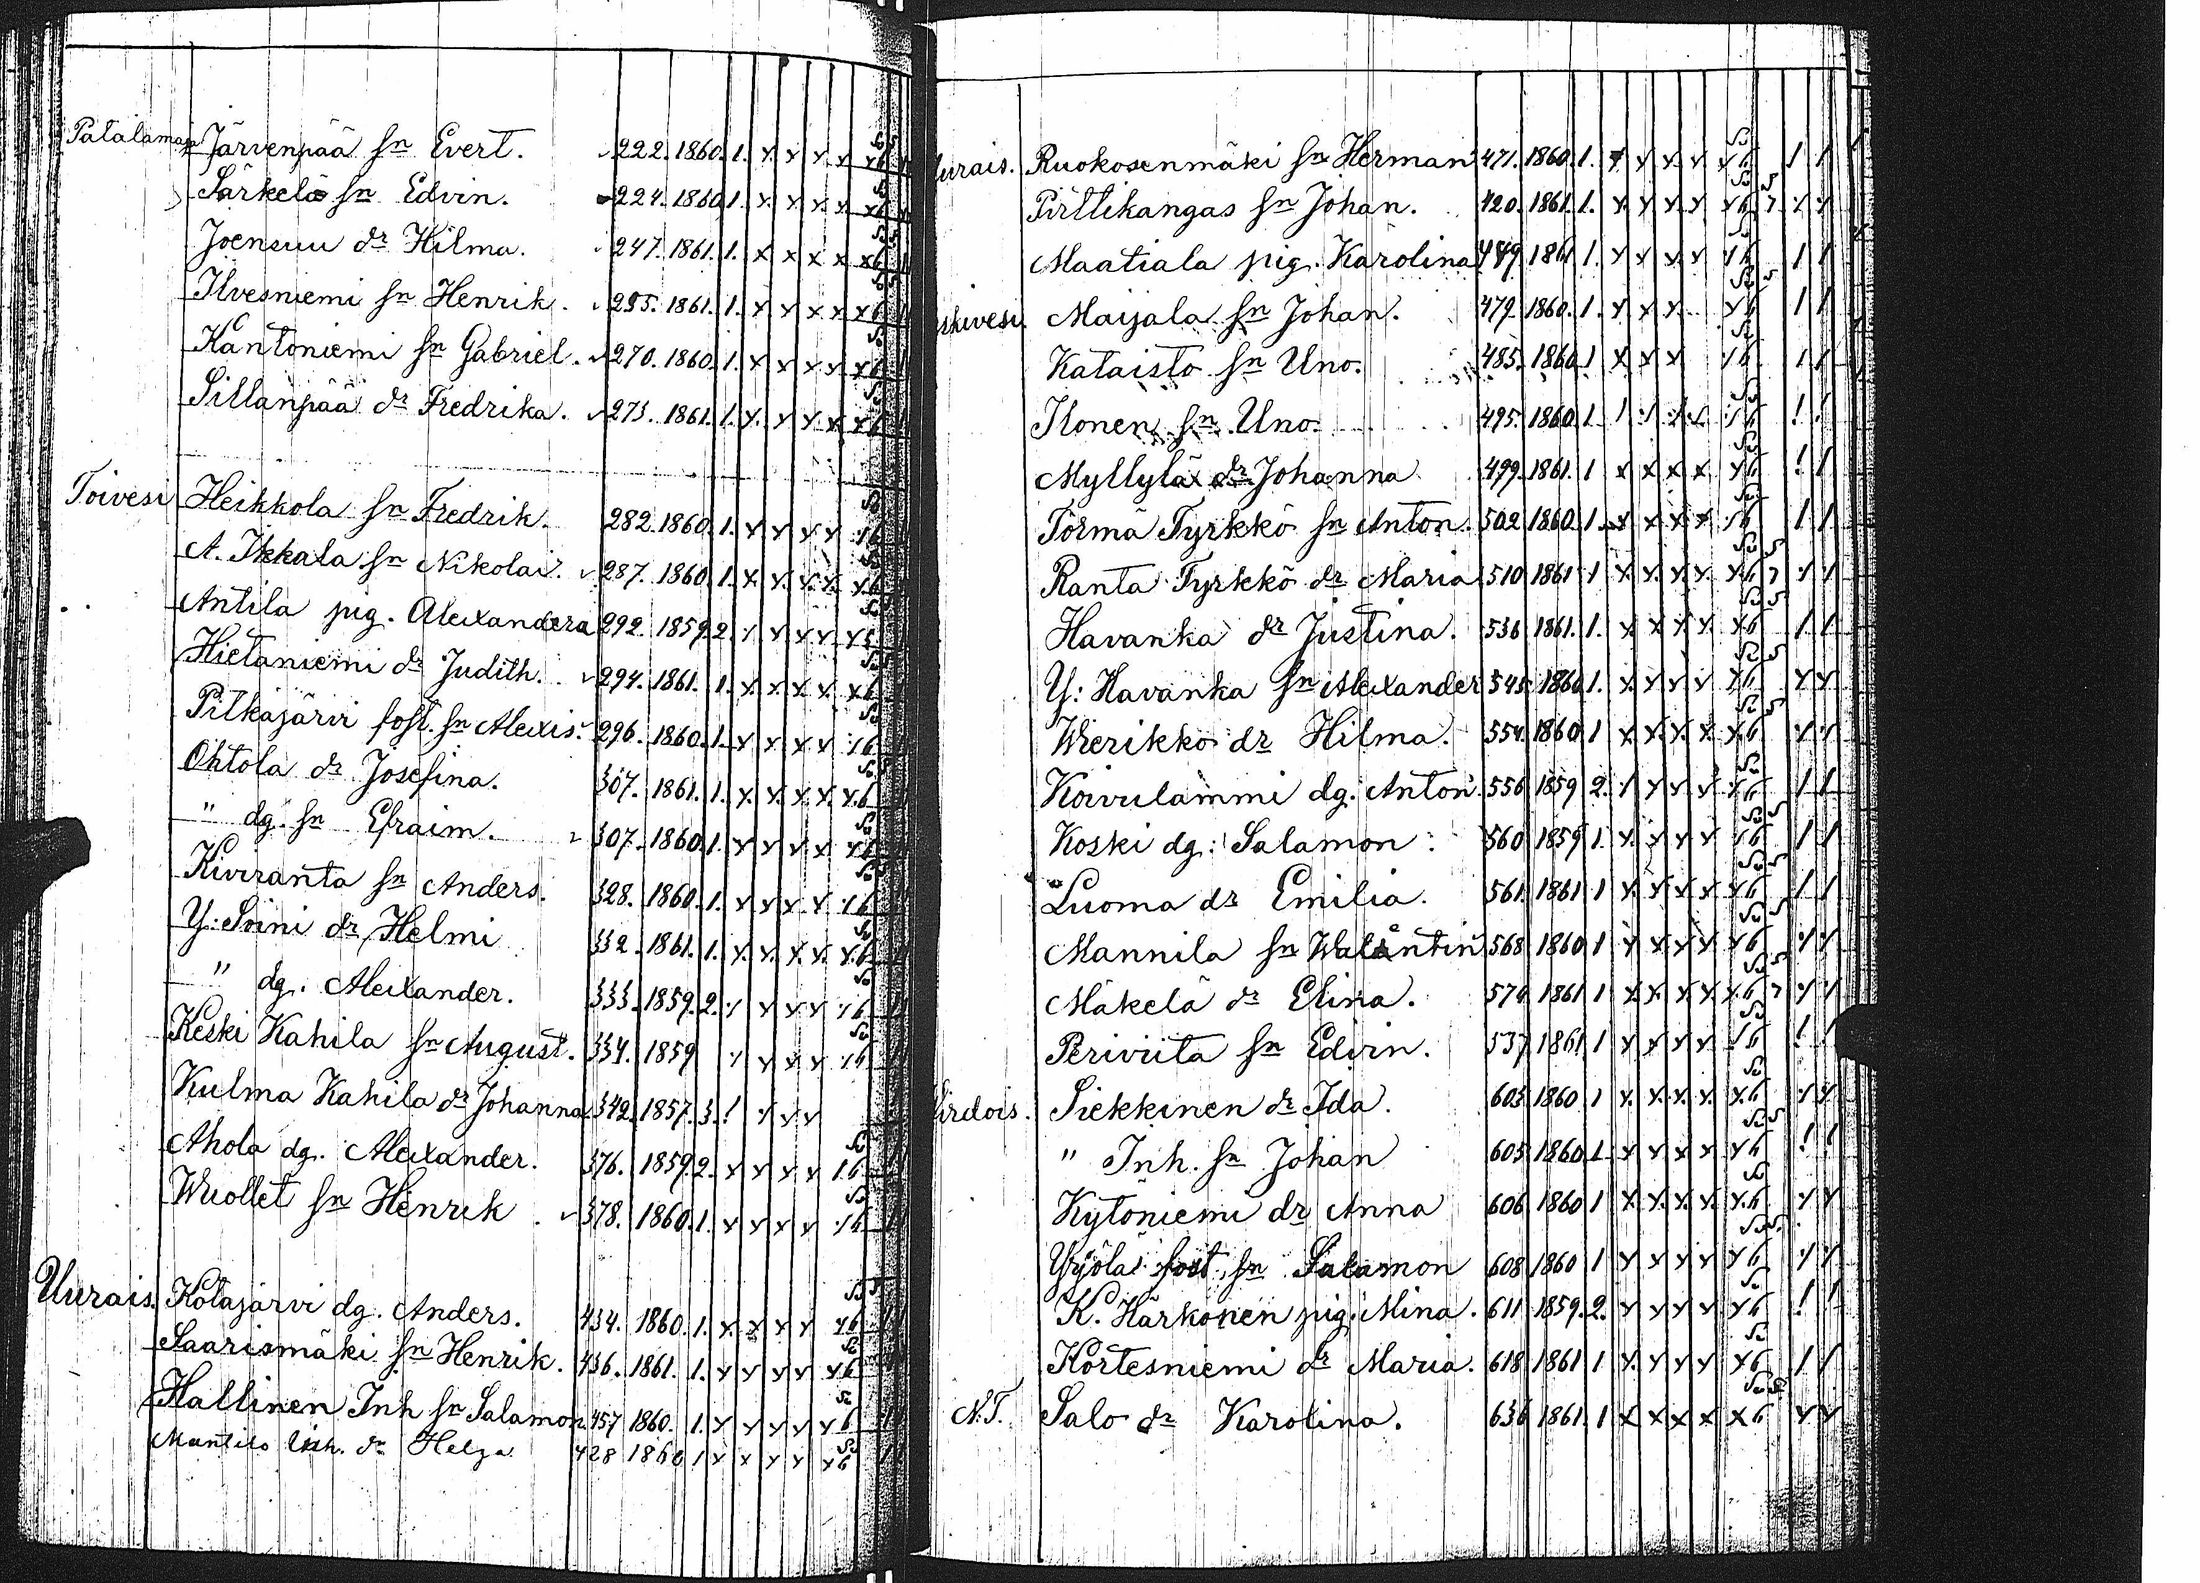 Patalamaja Järvenpää sn Evert. 222. 1860. 1. x x x x x6
Särkelä sn Edvin. 224. 1860. 1. x x x x x6
Joensuu dr Hilma. 247. 1861. 1. x x x x x6
Ilvesniemi sn Henrik. 255. 1861. 1. x x x x x6
Kantoniemi sn Gabriel. 270. 1860. 1. x x x x x6
Sillanpää dr Fredrika. 273. 1861. 1. x x x x x6
Toivesi Heikkola sn Fredrik. 282. 1860. 1. x x x x
A. Ikkala sn Nikolai. 287. 1860. 1. x x x x x6
Antila pig. Alexandera 292. 1859. 2.
Hietaniemi dr Judith. 294. 1861. 1. x x x x x6
Pitkäjärvi fost. sn Alexis. 296. 1860. 1. x x x x
Ohtola dr Josefina. 307. 1861. 1. x x x x x6
" dg. sn Efraim. 307. 1860. 1. x x x x x6
Kiviranta sn Anders. 328. 1860. 1. x x x x
Y: Soini dr Helmi 332. 1861. 1. x x x x x6
" dg. Alexander. 333. 1859. 2.
Keski Kahila sn August. 334. 1859
Kulma Kahila dr Johanna 342. 1857. 3.
Ahola dg. Alexander. 376. 1859. 2. x x x x
Wuollet sn Henrik 378. 1860. 1. x x x x
Uurais. Kotajärvi dg. Anders. 434. 1860. 1. x x x x x6
Saarismäki sn Henrik. 436. 1861. 1. x x x x x6
Hallinen Inh sn Salamon 457 1860. 1. x x x x x6
Mantila Inh. dr Helga 428 1860 1 x x x x x6
urais. Ruokosenmäki sn Herman 471. 1860. 1. x x x x x6
Pirttikangas sn Johan. 420. 1861. 1. x x x x x6 7
Maatiala pig. Karolina 449 1861 1. x x x x x6
Maijala sn Johan. 479. 1860. 1. x x x x6
Kataisto sn Uno. 485. 1860. 1 x x x x6
Ilonen sn Uno. 495. 1860. 1
Myllylä dr Johanna 499. 1861. 1 x x x x x6
Törmä Tyrkkö sn Anton. 502 1860. 1 x x x x
Ranta Tyrkkö dr Maria 510 1861 1 x x x x x6 7
Havanka dr Justina. 536 1861. 1. x x x x x6
Y: Havanka sn Alexander 545. 1860. 1. x x x x x6
Wierikko dr Hilma. 554. 1860 1 x x x x x6
Koivulammi dg. Anton 556 1859 2.
Koski dg: Salamon: 560 1859 1. x x x x
Luoma dr Emilia. 561. 1861 1 x x x x x6
Mannila sn Walentin 568 1860 1 x x x x x6
Mäkelä dr Elina. 574 1861 1 x x x x x6 7
Periviita sn Edvin. 537 1861 1 x x x x
irdois. Siekkinen dr Ida. 603 1860 1 x x x x x6
" Inh. sn Johan 605 1860. 1 x x x x x6
Kytöniemi dr Anna 606 1860 1 x x x x x6
Yrjölä fost. sn Salamon 608 1860 1 x x x x x6
K. Härkönen pig. Mina. 611 1859. 2. x x x x x6
Kortesniemi dr Maria. 618 1861 1 x x x x x6
N.T. Salo dr Karolina. 636 1861. 1 x x x x x6